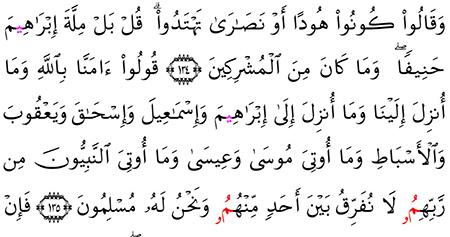 وَقَالُوا۟ كُونُوا۟ هُودًا أَوْ نَصَـٰرَىٰ تَهْتَدُوا۟ۗ قُلْ بَلْ مِلَّةَ إِبْرَٰهِيمَ
حَنِيفًاۖ وَمَا كَانَ مِنَ ٱلْمُشْرِكِينَ ﴿١٣٤﴾ قُولُوٓا۟ ءَامَنَّا بِٱللَّهِ وَمَآ
أُنزِلَ إِلَيْنَا وَمَآ أُنزِلَ إِلَىٰٓ إِبْرَٰهِيمَ وَإِسْمَـٰعِيلَ وَإِسْحَـٰقَ وَيَعْقُوبَ
وَٱلْأَسْبَاطِ وَمَآ أُوتِيَ مُوسَىٰ وَعِيسَىٰ وَمَآ أُوتِيَ ٱلنَّبِيُّونَ مِن
رَّبِّهِمُۥ لَا نُفَرِّقُ بَيْنَ أَحَدٍ مِّنْهُمُۥ وَنَحْنُ لَهُۥ مُسْلِمُونَ ﴿١٣٥﴾ فَإِنْ